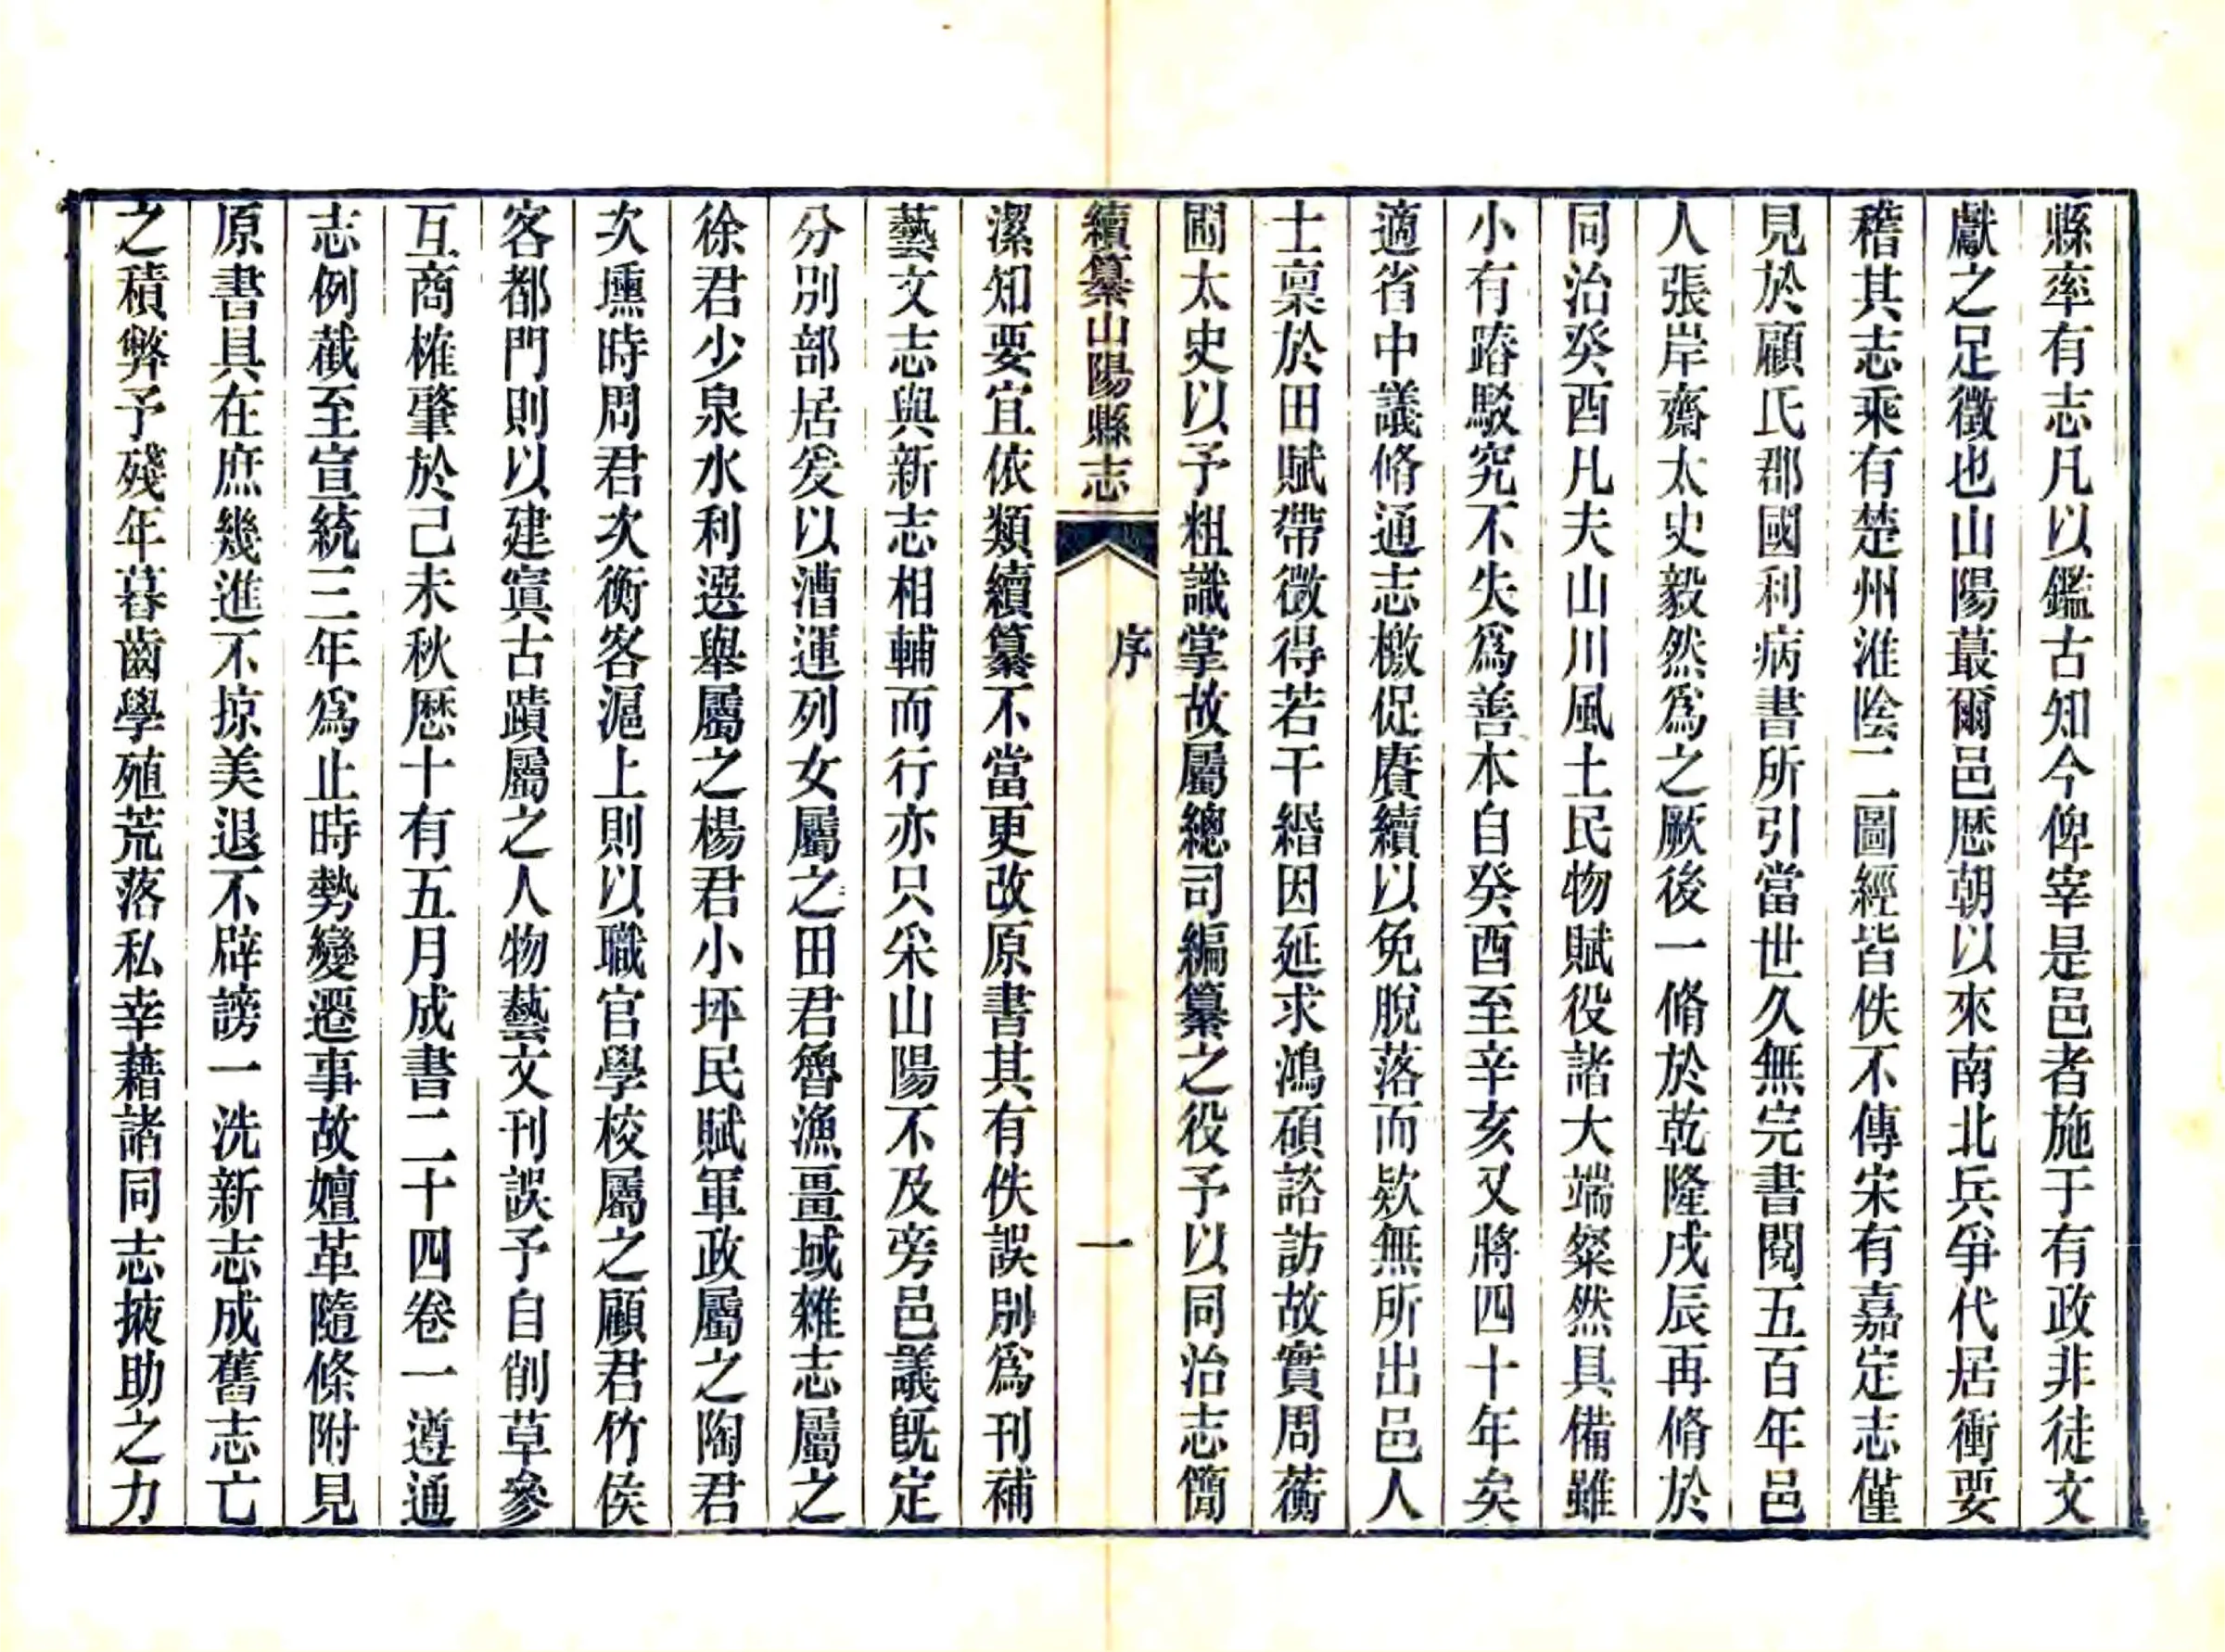 縣率有志凡以鑑古知今俾宰是邑者施于有政非徒文
獻之足徵也山陽蕞爾邑歷朝以來南北兵爭代居衝要
稽其志乘有楚州淮陰二圖經皆佚不傳宋有嘉定志僅
見於顧氏郡國利病書所引當世久無完書閱五百年邑
人張岸齋太史毅然爲之厥後一脩於乾隆戊辰再脩於
同治癸酉凡夫山川風土民物賦役諸大端粲然具備雖
小有踳駁究不失爲善本自癸酉至辛亥又將四十年矣
適省中議脩通志檄促賡續以免脫落而欵無所出邑人
士稟於田賦帶徵得若干緡因延求鴻碩諮訪故實周蘅
圃太史以予粗識掌故屬總司編纂之役予以同治志簡
續纂山陽縣志
序
一
潔知要宜依類續纂不當更改原書其有佚誤別爲刊補
藝文志與新志相輔而行亦只采山陽不及旁邑議既定
分別部居爰以漕運列女屬之田君魯漁畺域雜志屬之
徐君少泉水利選舉屬之楊君小坪民賦軍政屬之陶君
次壎時周君次衡客滬上則以職官學校屬之顧君竹侯
客都門則以建寘古蹟屬之人物藝文刊誤予自削草參
互商榷肇於己未秋歷十有五月成書二十四卷一遵通
志例截至宣統三年爲止時勢變遷事故嬗革隨條附見
原書具在庶幾進不掠美退不辟謗一洗新志成舊志亡
之積弊予殘年暮齒學殖荒落私幸藉諸同志掖助之力